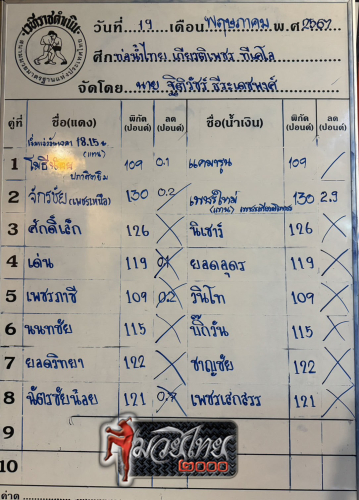 เวทีราชดำเนิน
วันที่ 19 เดือน พฤษภาคม พ.ศ 2567
ศึก ท่อน้ำไทย เกียรติเพชร ทีเคโอ
จัดโดย นาย ฐิติวัชร์ ธีระเดชพงศ์
คู่ที่ ชื่อ(แดง) พิกัด (ปอนด์) ลด (ปอนด์) ชื่อ(น้ำเงิน) พิกัด (ปอนด์) ลด (ปอนด์)
18.15 น
(แทน)
1 109 0.1 แคมารูน 109
2 จักรชัย (เพชรเหนือ) 130 0.2 เพชรใหม่ 130 2.9
(แทน)
3 ศักดิ์เล็ก 126 นิเชาว์ 126
4 เด่น 119 0.1 ยอดอุดร 119
5 เพชรภาษี 109 0.2 วินโท 109
6 นนทชัย 115 บิ๊กวัน 115
7 ยอดวิทยา 122 ชาญชัย 122
8 ฉัตรชัยน้อย 121 เพชรเสกสรร 121
9
10
มวยไทย
๒๐๐๐